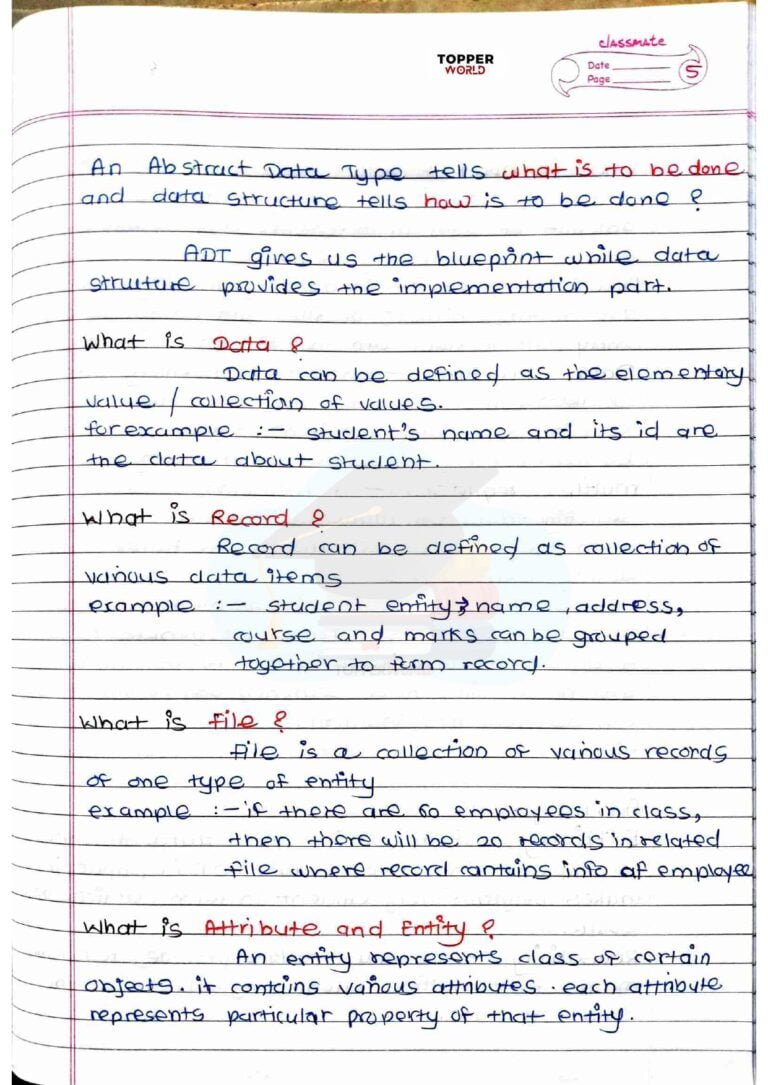 TOPPER
WORLD
classmate
Date
Page
5
An Abstract Data Type tells what is to be done
and data structure tells how is to be done ?
ADT gives us the blueprint while data
structure provides the implementation part.
What is Data ?
Data can be defined as the elementary
value / collection of values.
for example :- student's name and its id are
the data about student.
What is Record ?
Record can be defined as collection of
various data items
example :- student entity; name, address,
course and marks can be grouped
together to form record.
What is File ?
File is a collection of various records
of one type of entity
example :- if there are 60 employees in class,
then there will be 20 records in related
file where record contains info of employee
What is Attribute and Entity ?
An entity represents class of certain
objects. it contains various attributes. each attribute
represents particular property of that entity.